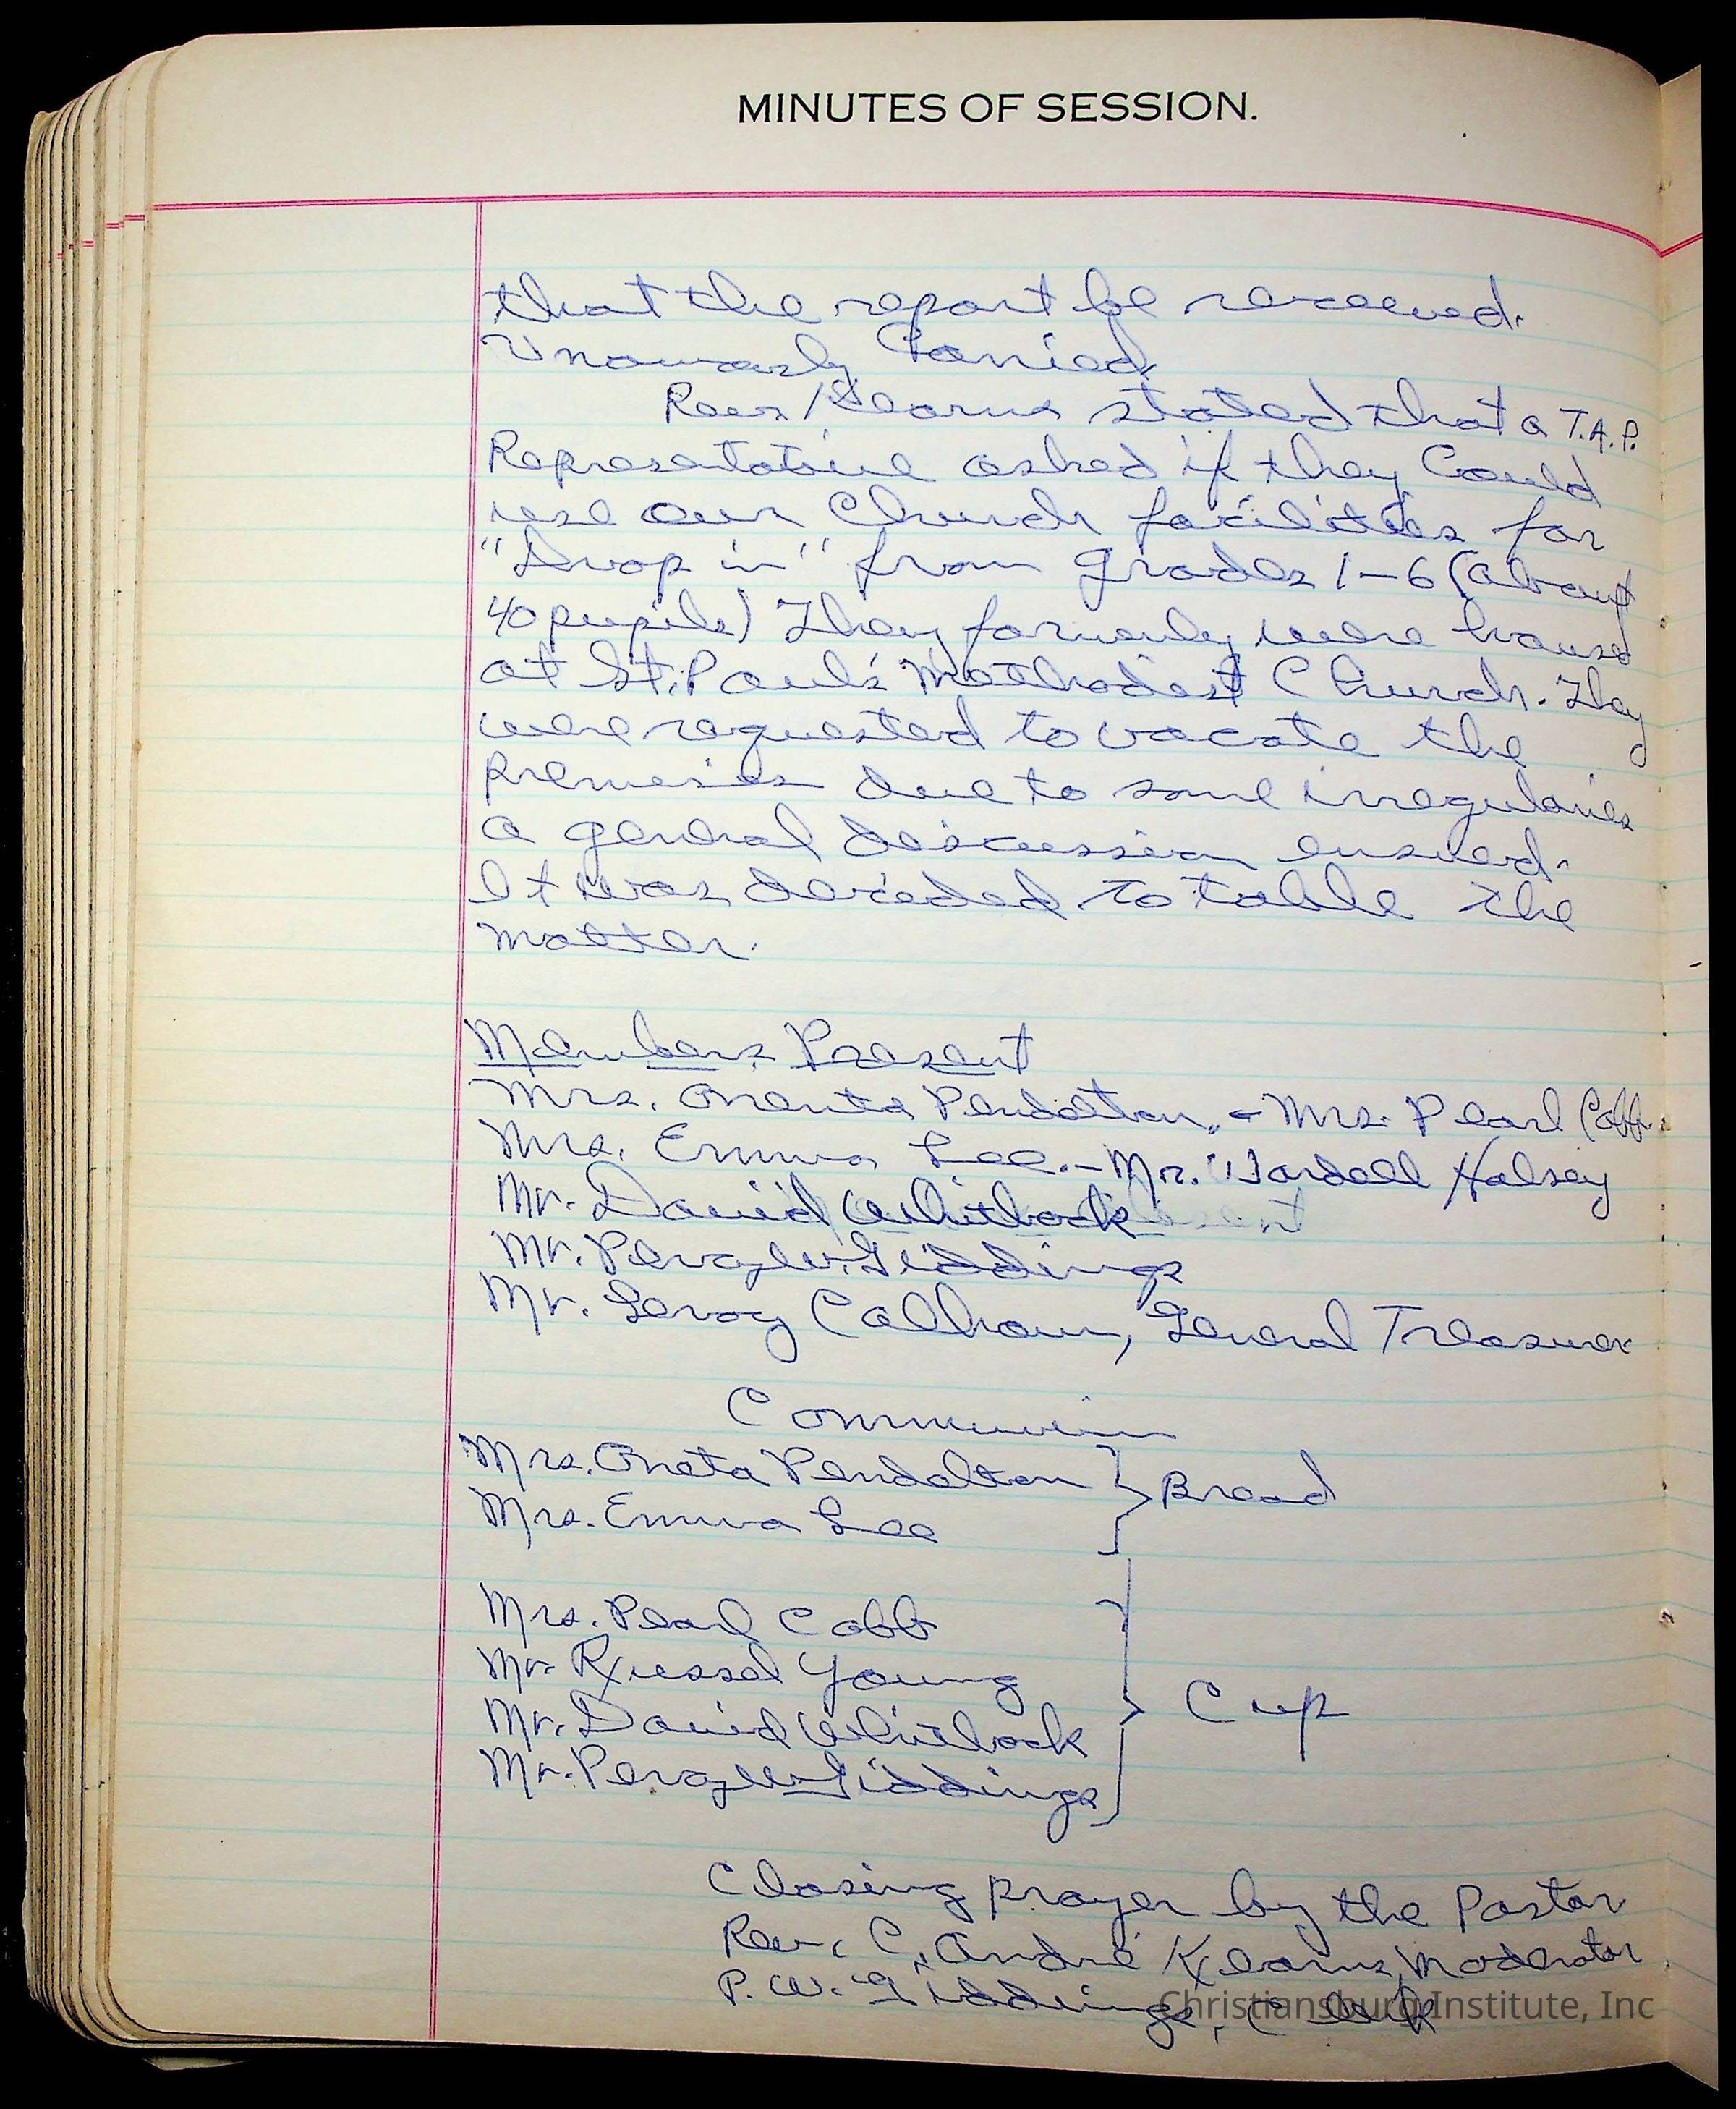 MINUTES OF SESSION.
that the report be received.
Carried.
Rev. Kearns stated that a T.A.P.
Representative asked if they Could
use our Church facilities for
"Drop in" from grades 1-6 (about
40 pupils) They formerly were housed
at St. Paul's Methodist Church. They
were requested to vacate the
premisies due to some irregularies
a general discussion ensued.
It was decided to table the
matter.
Members Present
Mrs. Pendelton, - Mrs. Pearl Cobb.
Mrs. Emma Lee. - Mr. Wardell Halsey
Mr. David Whitlock
Mr. Giddings
Mr. Leroy Calhoun, General Treasurer
Communion
Mrs. Oneta Pendelton } Bread
Mrs. Emma Lee
Mrs. Pearl Cobb
Mr. Russel Young
Mr. David Whitlock } Cup
Mr. Giddings
Closing prayer by the Pastor
Rev. C. André Kearns, Moderator
P. W. Giddings, Clerk
Christiansburg Institute, Inc